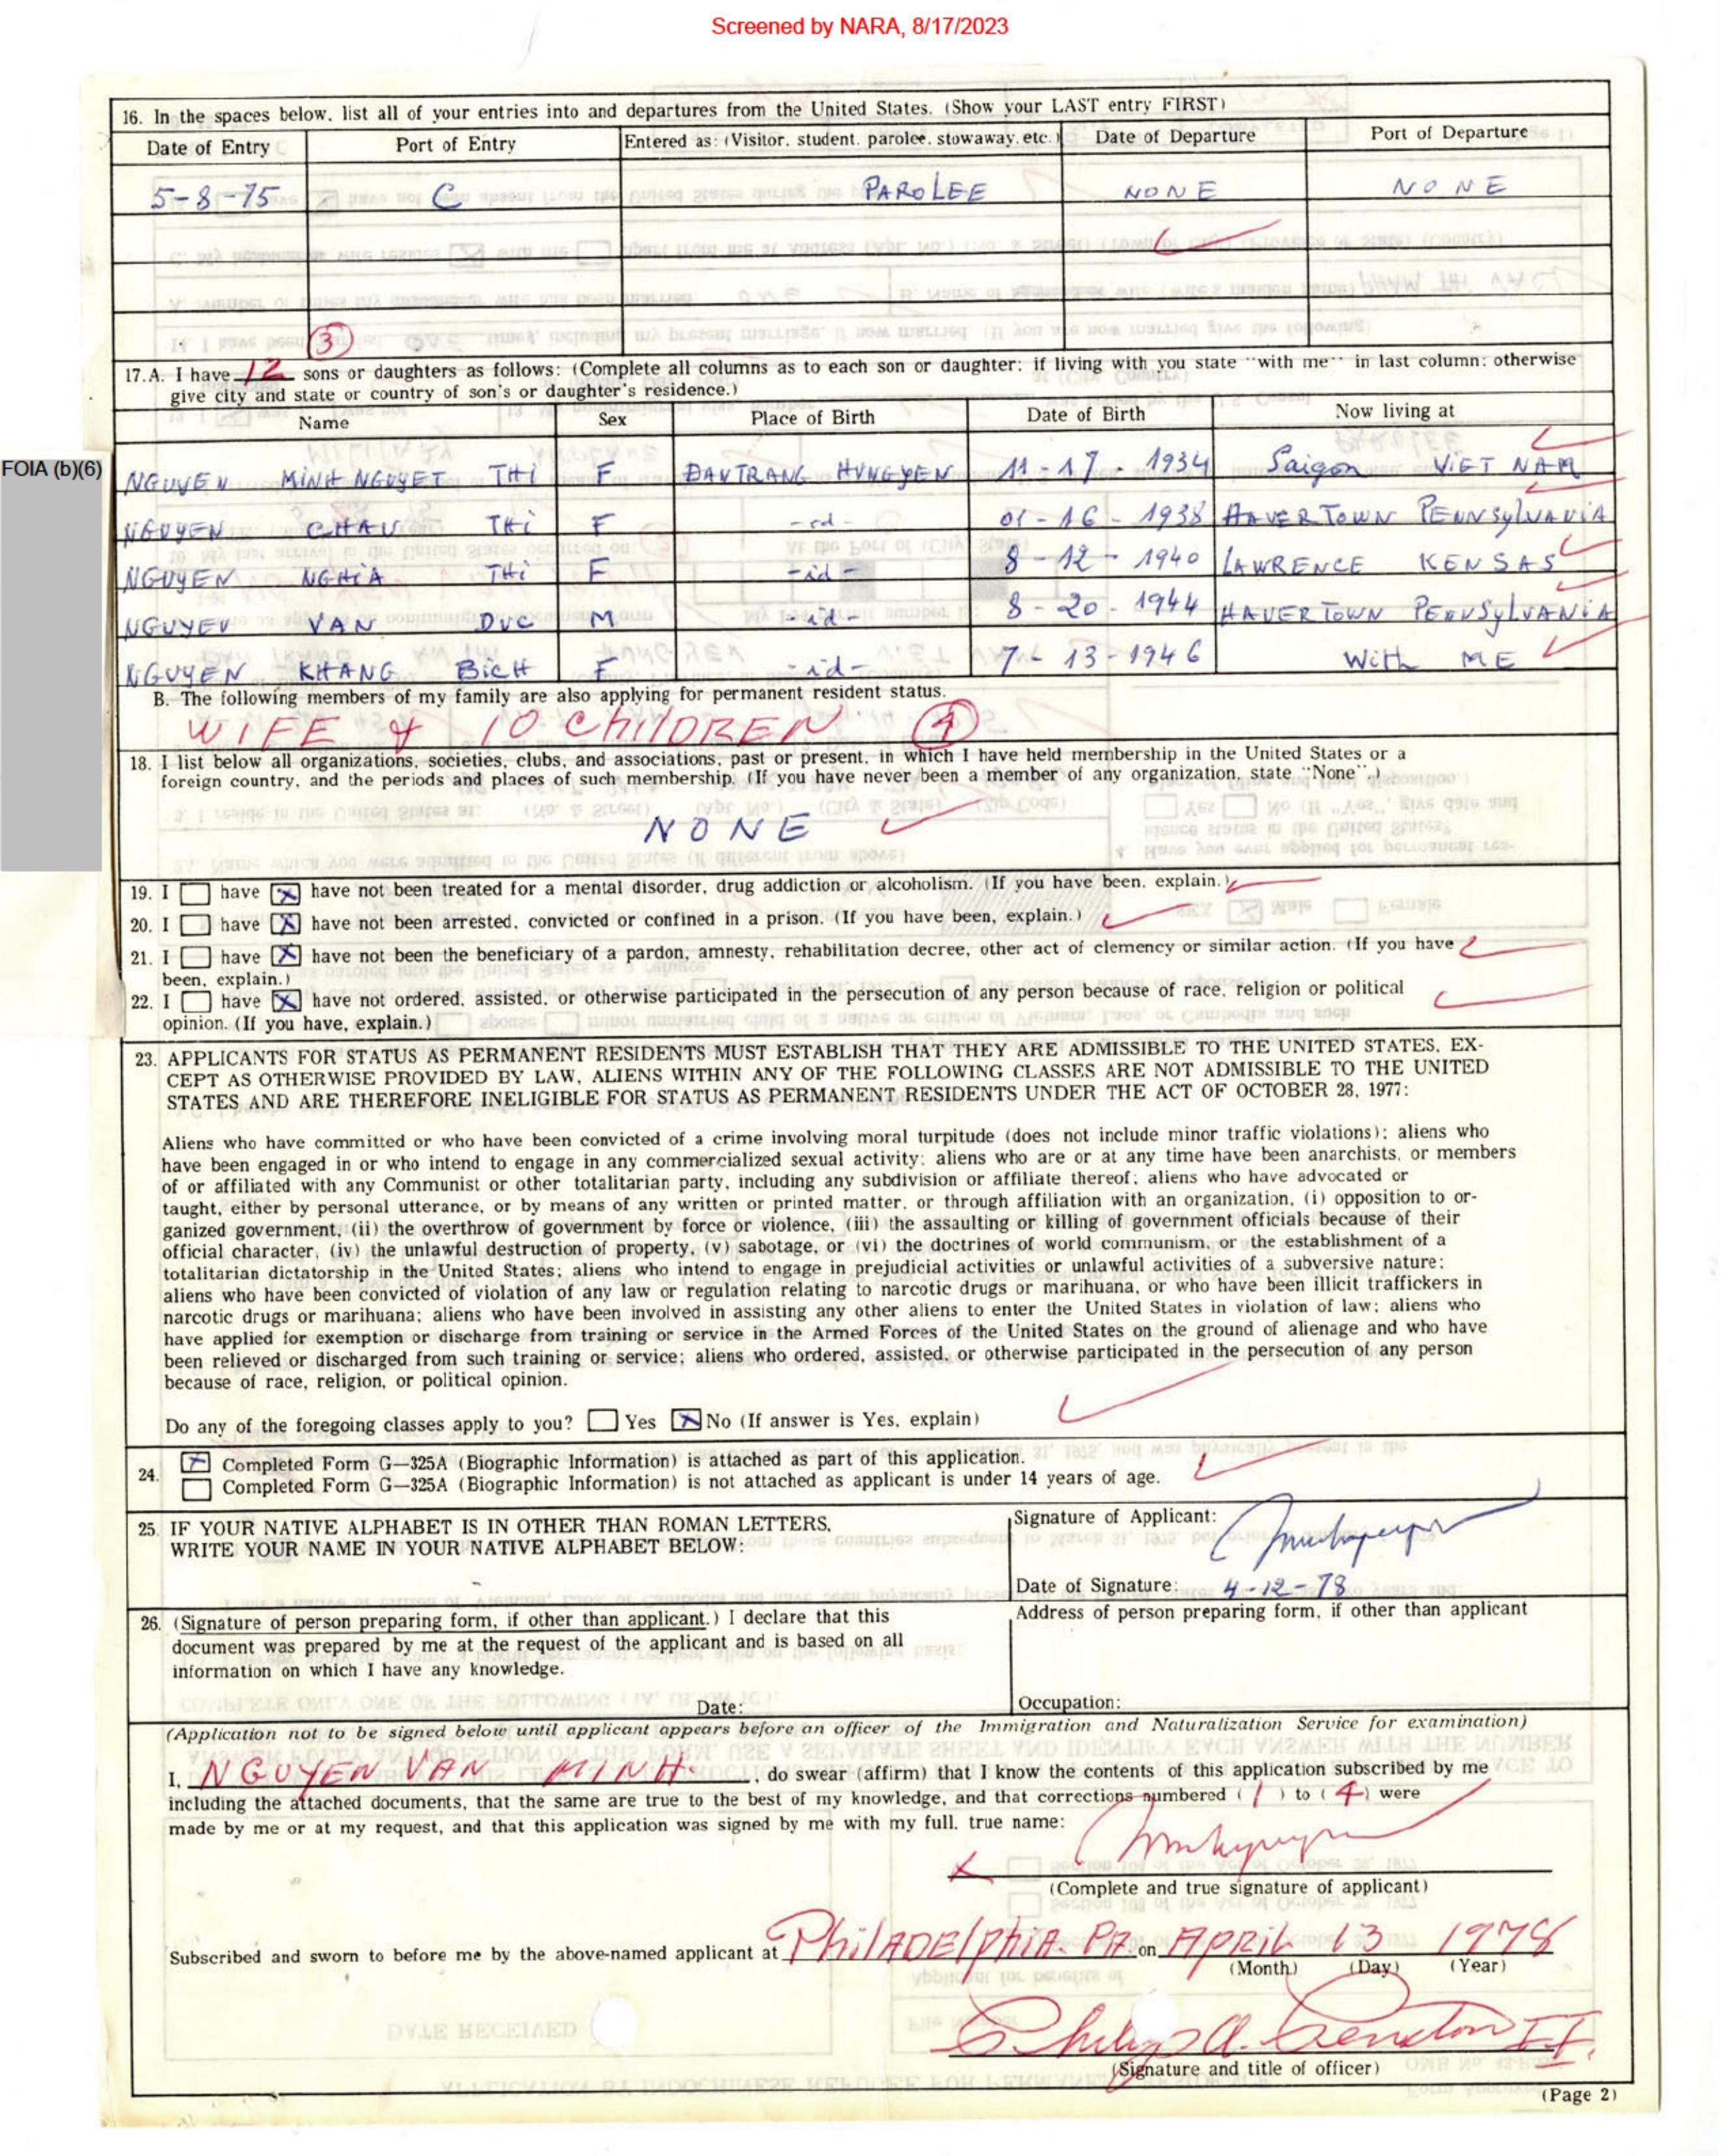 Screened by NARA, 8/17/2023
16. In the spaces below, list all of your entries into and departures from the United States. (Show your LAST entry FIRST)
Date of Entry Port of Entry Entered as: (Visitor, student, parolee, stowaway, etc.) Date of Departure Port of Departure
5-8-75 C PAROLEE NONE NONE
3
17.A. I have 12 sons or daughters as follows: (Complete all columns as to each son or daughter; if living with you state "with me" in last column; otherwise
give city and state or country of son's or daughter's residence.)
Name Sex Place of Birth Date of Birth Now living at
FOIA (b)(6)
NGUYEN MINH NGUYET THI F DAUTRANG HUNGYEN 11-17-1934 Saigon VIET NAM
NGUYEN CHAU THI F -id- 01-16-1938 HAVERTOWN PENNSYLVANIA
NGUYEN NGHIA THI F -id- 8-12-1940 LAWRENCE KENSAS
NGUYEN VAN DUC M -id- 8-20-1944 HAVERTOWN PENNSYLVANIA
NGUYEN KHANG BICH F -id- 7-13-1946 With ME
B. The following members of my family are also applying for permanent resident status.
WIFE & 10 ChILDREN. 4
18. I list below all organizations, societies, clubs, and associations, past or present, in which I have held membership in the United States or a
foreign country, and the periods and places of such membership. (If you have never been a member of any organization, state "None".)
NONE
19. I have have not been treated for a mental disorder, drug addiction or alcoholism. (If you have been, explain.)
20. I have have not been arrested, convicted or confined in a prison. (If you have been, explain.)
21. I have have not been the beneficiary of a pardon, amnesty, rehabilitation decree, other act of clemency or similar action. (If you have
been, explain.)
22. I have have not ordered, assisted, or otherwise participated in the persecution of any person because of race, religion or political
opinion. (If you have, explain.)
23. APPLICANTS FOR STATUS AS PERMANENT RESIDENTS MUST ESTABLISH THAT THEY ARE ADMISSIBLE TO THE UNITED STATES, EX-
CEPT AS OTHERWISE PROVIDED BY LAW, ALIENS WITHIN ANY OF THE FOLLOWING CLASSES ARE NOT ADMISSIBLE TO THE UNITED
STATES AND ARE THEREFORE INELIGIBLE FOR STATUS AS PERMANENT RESIDENTS UNDER THE ACT OF OCTOBER 28, 1977:
Aliens who have committed or who have been convicted of a crime involving moral turpitude (does not include minor traffic violations); aliens who
have been engaged in or who intend to engage in any commercialized sexual activity; aliens who are or at any time have been anarchists, or members
of or affiliated with any Communist or other totalitarian party, including any subdivision or affiliate thereof; aliens who have advocated or
taught, either by personal utterance, or by means of any written or printed matter, or through affiliation with an organization, (i) opposition to or-
ganized government, (ii) the overthrow of government by force or violence, (iii) the assaulting or killing of government officials because of their
official character, (iv) the unlawful destruction of property, (v) sabotage, or (vi) the doctrines of world communism, or the establishment of a
totalitarian dictatorship in the United States; aliens who intend to engage in prejudicial activities or unlawful activities of a subversive nature;
aliens who have been convicted of violation of any law or regulation relating to narcotic drugs or marihuana, or who have been illicit traffickers in
narcotic drugs or marihuana; aliens who have been involved in assisting any other aliens to enter the United States in violation of law; aliens who
have applied for exemption or discharge from training or service in the Armed Forces of the United States on the ground of alienage and who have
been relieved or discharged from such training or service; aliens who ordered, assisted, or otherwise participated in the persecution of any person
because of race, religion, or political opinion.
Do any of the foregoing classes apply to you? Yes No (If answer is Yes, explain)
24. Completed Form G-325A (Biographic Information) is attached as part of this application.
Completed Form G-325A (Biographic Information) is not attached as applicant is under 14 years of age.
25. IF YOUR NATIVE ALPHABET IS IN OTHER THAN ROMAN LETTERS,
WRITE YOUR NAME IN YOUR NATIVE ALPHABET BELOW:
Signature of Applicant:
Date of Signature: 4-12-78
26. (Signature of person preparing form, if other than applicant.) I declare that this
document was prepared by me at the request of the applicant and is based on all
information on which I have any knowledge.
Date:
Address of person preparing form, if other than applicant
Occupation:
(Application not to be signed below until applicant appears before an officer of the Immigration and Naturalization Service for examination)
I, NGUYEN VAN MINH, do swear (affirm) that I know the contents of this application subscribed by me
including the attached documents, that the same are true to the best of my knowledge, and that corrections numbered (1) to (4) were
made by me or at my request, and that this application was signed by me with my full, true name:
X
(Complete and true signature of applicant)
Subscribed and sworn to before me by the above-named applicant at PhILADElphiA. PA. on APRIL 13 1978
(Month) (Day) (Year)
(Signature and title of officer)
(Page 2)